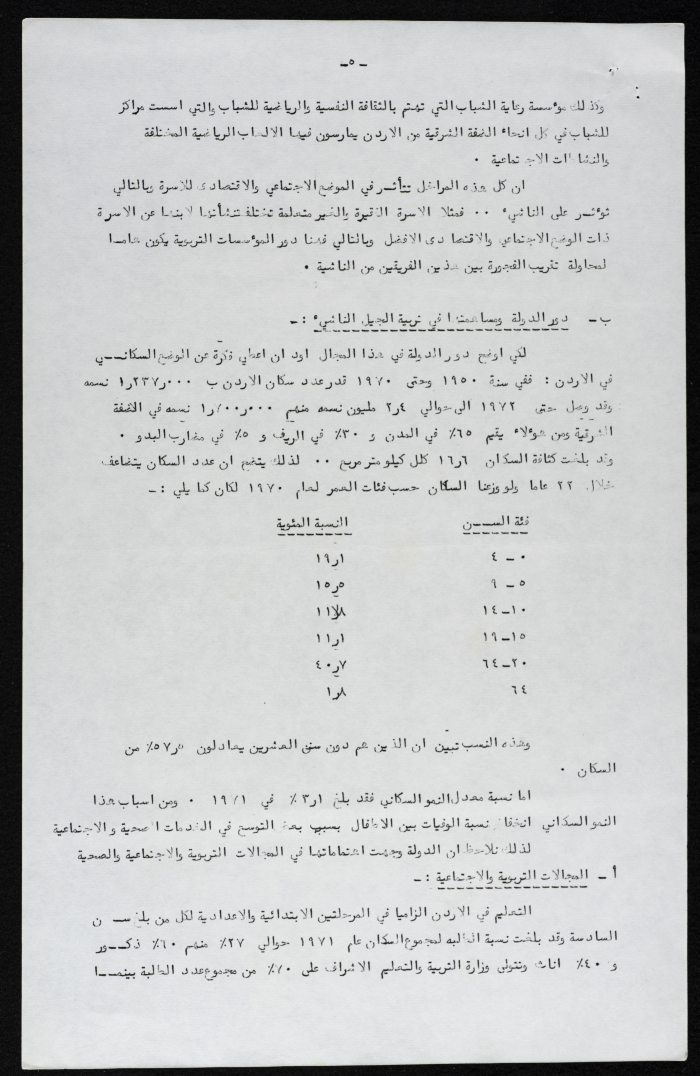 - ٥ -
وكذلك مؤسسة رعاية الشباب التي تهتم بالثقافة النفسية والرياضية للشباب والتي اسست مراكز
للشباب في كل انحاء الضفة الشرقية من الاردن يمارسون فيها الالعاب الرياضية المختلفة
والنشاطات الاجتماعية .
ان كل هذه المراحل تتأثر في الموضع الاجتماعي والاقتصادي للاسرة وبالتالي
تؤثر على الناشيء .. فمثلا الاسرة الفقيرة والغير متعلمة تختلف تنشأتها لابنها عن الاسرة
ذات الوضع الاجتماعي والاقتصادى الافضل وبالتالي فهنا دور المؤسسات التربوية يكون هاما
لمحاولة تقريب الفجورة بين هذين الفريقين من الناشئة .
ب - دور الدولة ومساهمتها في تربية الجيل الناشيء : -
لكي اوضح دور الدولة في هذا المجال اود ان اعطي فكرة عن الوضع السكانـــي
في الاردن : ففي سنة ١٩٥٠ وحتى ١٩٧٠ قدر عدد سكان الاردن ب ٠٠٠ر٢٣٧ر١ نسمه
وقد وصل حتى ١٩٧٢ الى حوالي ٤ر٢ مليون نسمه منهم نسمه في الضفة
الشرقية ومن هؤلاء يقيم ٦٥٪ في المدن و ٣٠٪ في الريف و ٥٪ في مضارب البدو .
وقد بلغت كثافة السكان ٦ر١٦ كلل كيلو متر مربع .. لذلك يتضح ان عدد السكان يتضاعف
خلال ٢٢ عاما ولو وزعنا السكان حسب فئات العمر لعام ١٩٧٠ لكان كما يلي : -
فئة الســـن النسبة المئوية
٠ - ٤ ١ر١٩
٥ - ٩ ٥ر١٥
١٠-١٤ ٨ر١١
١٥-١٩ ١ر١١
٢٠-٦٤ ٧ر٤٠
٦٤ ٨ر١
وهذه النسب تبين ان الذين هم دون سن العشرين يعادلون ٥ر٥٧٪ من
السكان .
اما نسبة معدل النمو السكاني فقد بلغ ١ر٣ ٪ في . ومن اسباب هذا
النمو السكاني انخفاض نسبة الوفيات بين الاطفال بسبب التوسع في الخدمات الصحية والاجتماعية
لذلك نلاحظ ان الدولة وجهت اهتماماتها في المجالات التربوية والاجتماعية والصحية
أ - المجالات التربوية والاجتماعية : -
التعليم في الاردن الزاميا في المرحلتين الابتدائية والاعدادية لكل من بلغ ســـن
السادسة وقد بلغت نسبة الطالبه لمجموع السكان عام ١٩٧١ حوالي ٢٧٪ منهم ٦٠٪ ذكـــور
و ٤٠٪ اناث وتتولى وزارة التربية والتعليم الاشراف على من مجموع عدد الطالبة بينمـــا